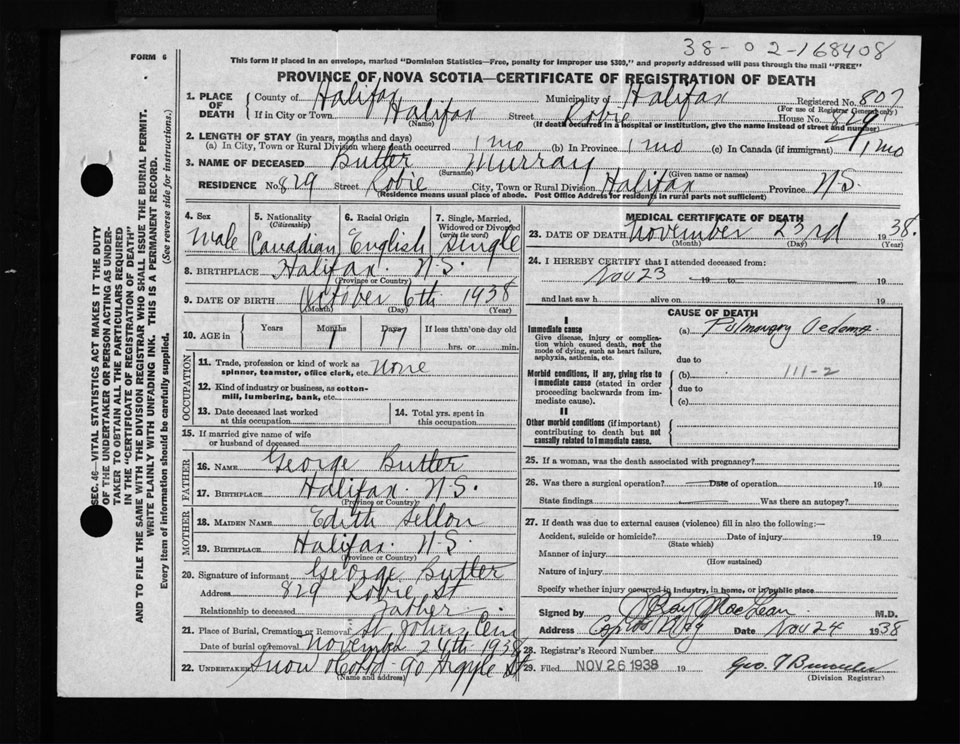 38-02-168408
FORM 6
This form if placed in an envelope, marked "Dominion Statistics—Free, penalty for improper use $300," and properly addressed will pass through the mail "FREE"
PROVINCE OF NOVA SCOTIA—CERTIFICATE OF REGISTRATION OF DEATH
1. PLACE OF DEATH County of Halifax Municipality of Halifax Registered No. 807
(For use of Registrar General)
If in City or Town Halifax Street Robie House No. 829
(Name) (If death occurred in a hospital or institution, give the name instead of street and number)
2. LENGTH OF STAY (in years, months and days)
(a) In City, Town or Rural Division where death occurred 1 mo (b) In Province 1 mo (c) In Canada (if immigrant) 1 mo
3. NAME OF DECEASED Butler Murray
(Surname) (Given name or names)
RESIDENCE No. 829 Street Robie City, Town or Rural Division Halifax Province N.S.
(Residence means usual place of abode. Post Office Address for residents in rural parts not sufficient)
4. Sex Male
5. Nationality (Citizenship) Canadian
6. Racial Origin English
7. Single, Married, Widowed or Divorced (write the word) Single
8. BIRTHPLACE Halifax. N.S.
(Province or Country)
9. DATE OF BIRTH October 6th 1938
(Month) (Day) (Year)
10. AGE in Years Months 1 Days 17 If less than one day old
hrs. or min.
OCCUPATION
11. Trade, profession or kind of work as spinner, teamster, office clerk, etc. None
12. Kind of industry or business, as cotton-mill, lumbering, bank, etc.
13. Date deceased last worked at this occupation
14. Total yrs. spent in this occupation
15. If married give name of wife or husband of deceased
FATHER
16. NAME George Butler
17. BIRTHPLACE Halifax. N.S.
(Province or Country)
MOTHER
18. MAIDEN NAME Edith Sellon
19. BIRTHPLACE Halifax. N.S.
(Province or Country)
20. Signature of informant George Butler
Address 829 Robie St
Relationship to deceased Father
21. Place of Burial, Cremation or Removal St. Johns Cem
Date of burial or removal November 24th 1938
22. UNDERTAKER Snow & Co Ltd 90 Argyle St
(Name and address)
MEDICAL CERTIFICATE OF DEATH
23. DATE OF DEATH November 23rd 1938.
(Month) (Day) (Year)
24. I HEREBY CERTIFY that I attended deceased from:
Nov 23 19 to 19
and last saw h alive on 19
CAUSE OF DEATH
I
Immediate cause
Give disease, injury or complication which caused death, not the mode of dying, such as heart failure, asphyxia, asthenia, etc.
(a) Pulmonary Oedema
due to
Morbid conditions, if any, giving rise to immediate cause (stated in order proceeding backwards from immediate cause).
(b) 111-2
due to
(c)
II
Other morbid conditions (if important) contributing to death but not causally related to immediate cause.
25. If a woman, was the death associated with pregnancy?
26. Was there a surgical operation? Date of operation 19
State findings Was there an autopsy?
27. If death was due to external causes (violence) fill in also the following:—
Accident, suicide or homicide? Date of injury 19
(State which)
Manner of injury
(How sustained)
Nature of injury
Specify whether injury occurred in industry, in home, or in public place
Signed by J Roy MacLean M.D.
Address Capitol Bldg Date Nov 24 1938
28. Registrar's Record Number
29. Filed NOV 26 1938 19
(Division Registrar)
SEC. 46—VITAL STATISTICS ACT MAKES IT THE DUTY
OF THE UNDERTAKER OR PERSON ACTING AS UNDERTAKER
TO OBTAIN ALL THE PARTICULARS REQUIRED
IN THE "CERTIFICATE OF REGISTRATION OF DEATH"
AND TO FILE THE SAME WITH THE DIVISION REGISTRAR WHO SHALL ISSUE THE BURIAL PERMIT.
WRITE PLAINLY WITH UNFADING INK. THIS IS A PERMANENT RECORD.
Every item of information should be carefully supplied. (See reverse side for instructions.)